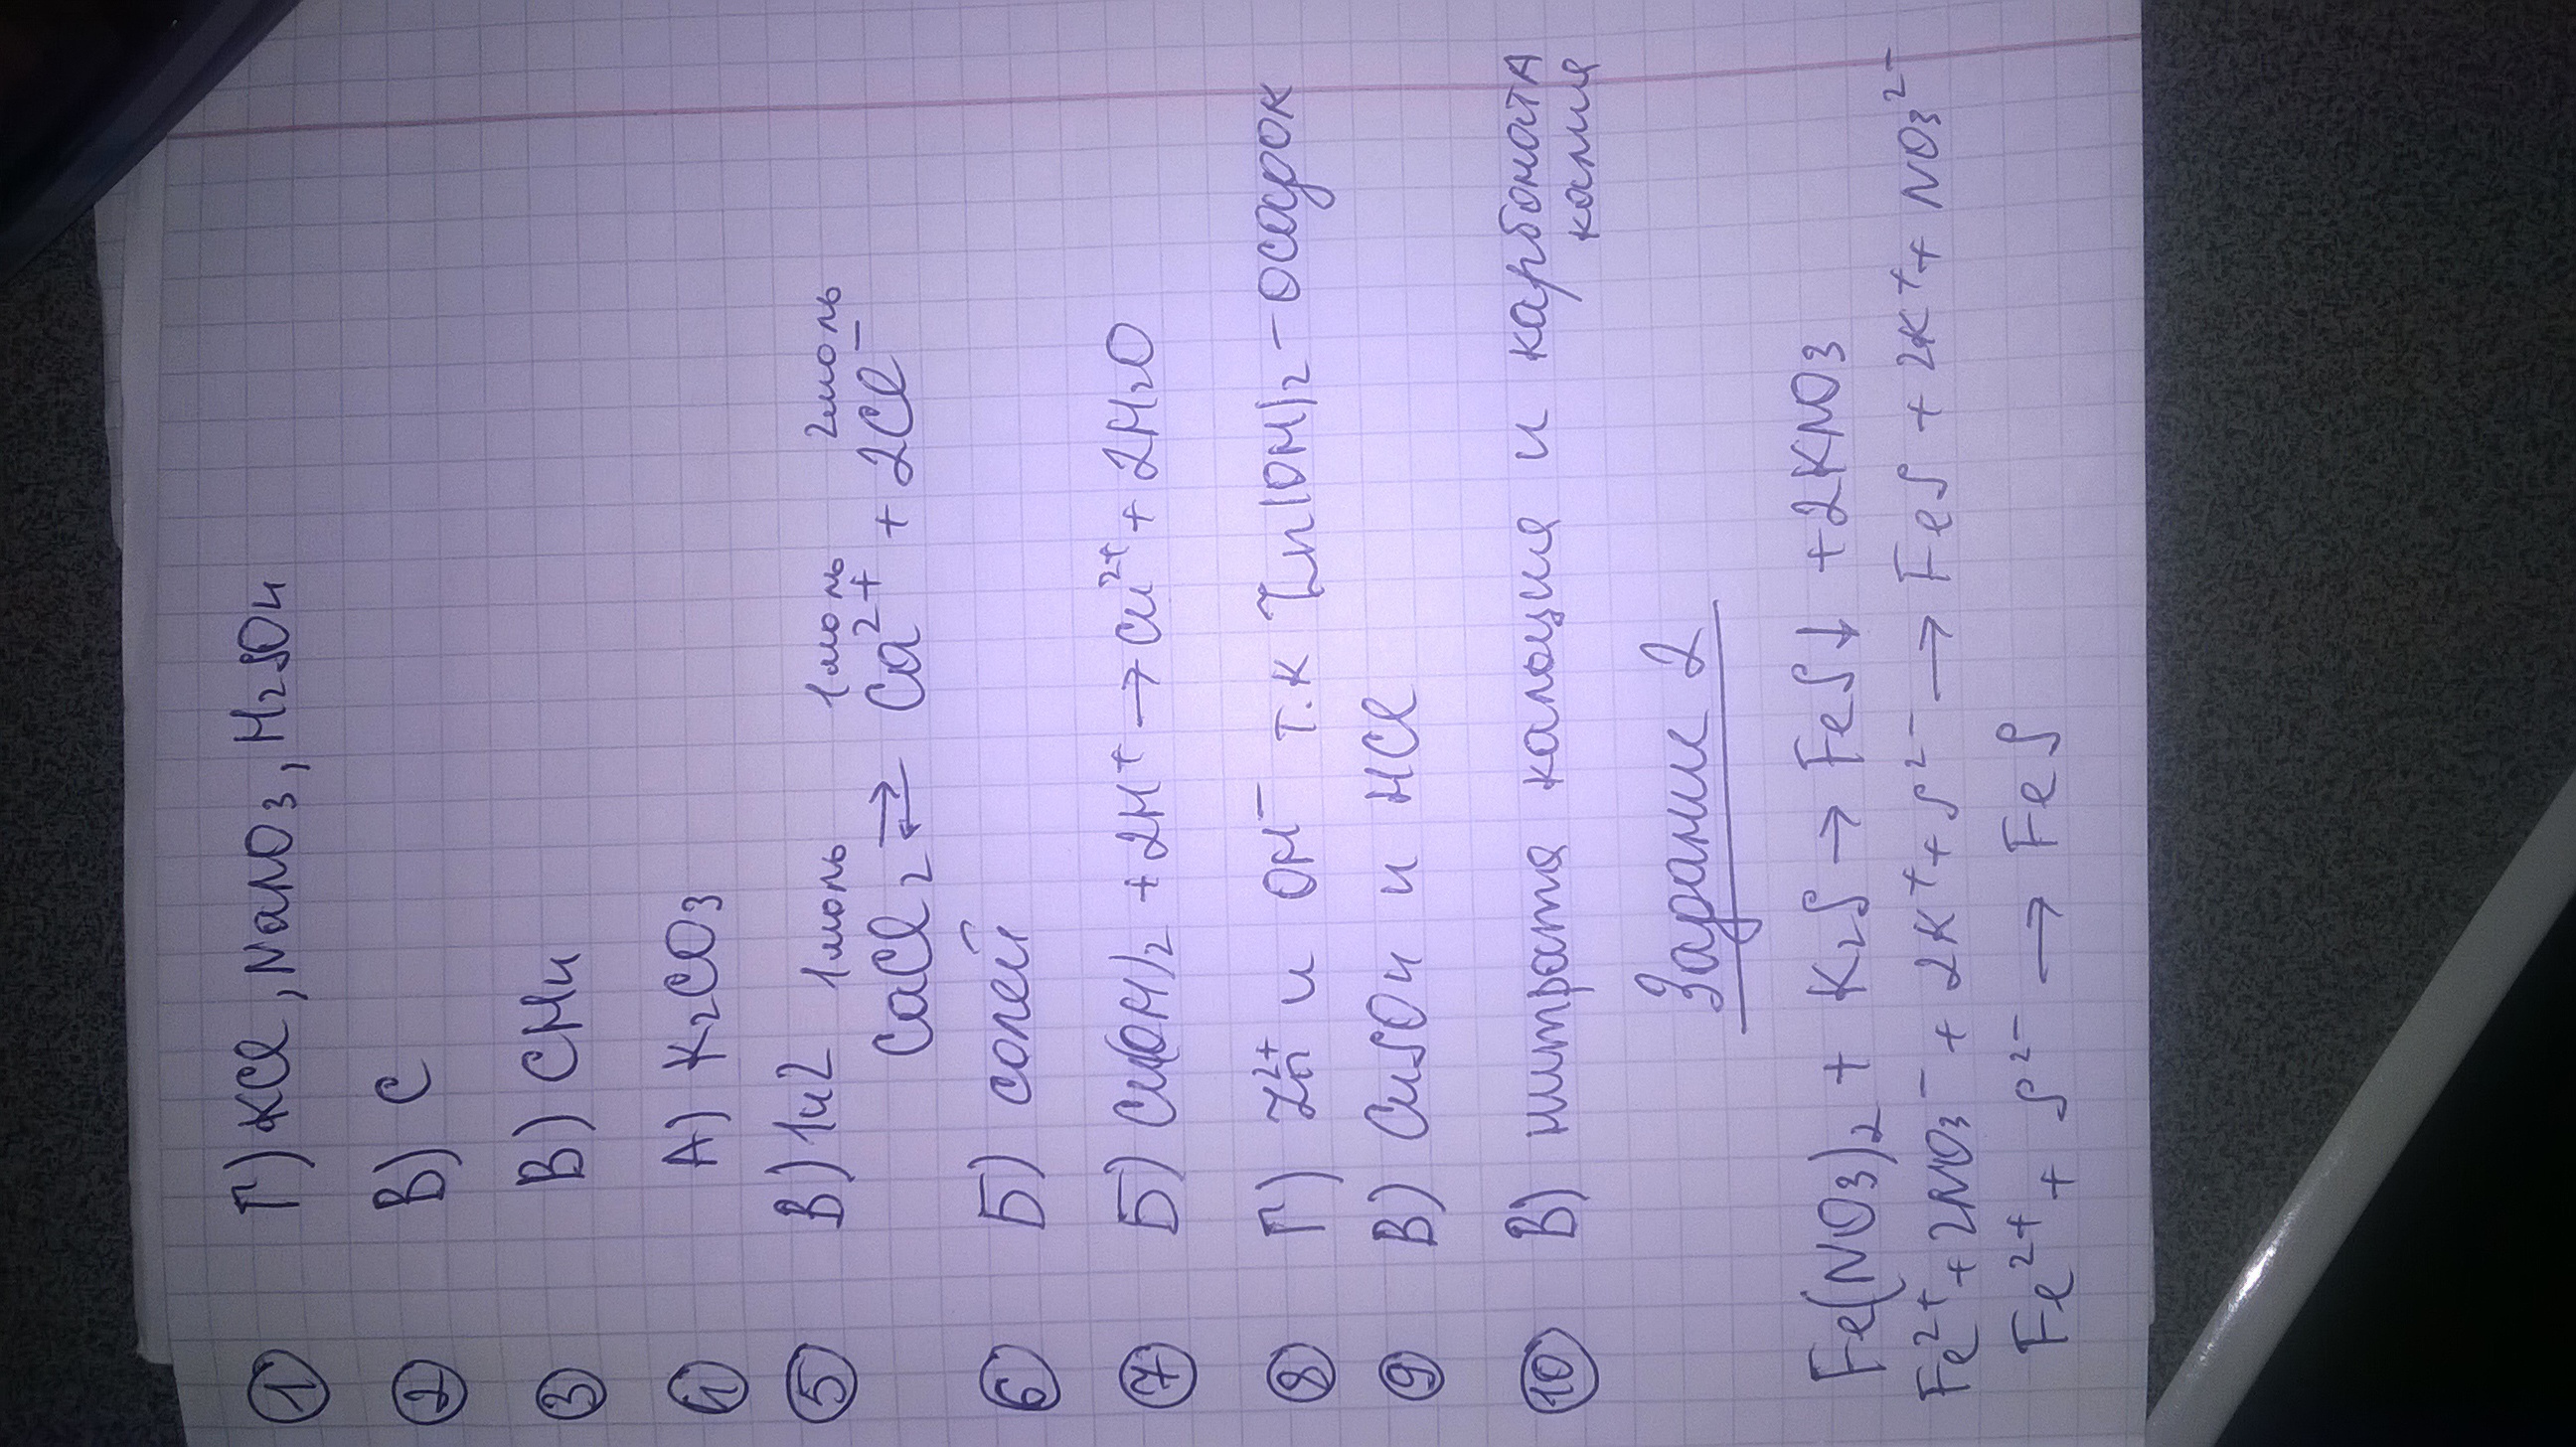 ① Г) KCl, NaNO3, H2SO4
② В) C
③ В) CH4
④ А) K2CO3
⑤ В) 1и2 1моль 1моль 2моль
CaCl2 ⇄ Ca2+ + 2Cl−
⑥ Б) солей
⑦ Б) Cu(OH)2 + 2H+ → Cu2+ + 2H2O
⑧ Г) Zn2+ и OH− т.к Zn(OH)2 − осадок
⑨ В) CuSO4 и HCl
⑩ В) нитрата кальция и карбоната
калия
Задание 2
Fe(NO3)2 + K2S → FeS↓ + 2KNO3
Fe2+ + 2NO3− + 2K+ + S2− → FeS + 2K+ + NO3 2−
Fe2+ + S2− → FeS